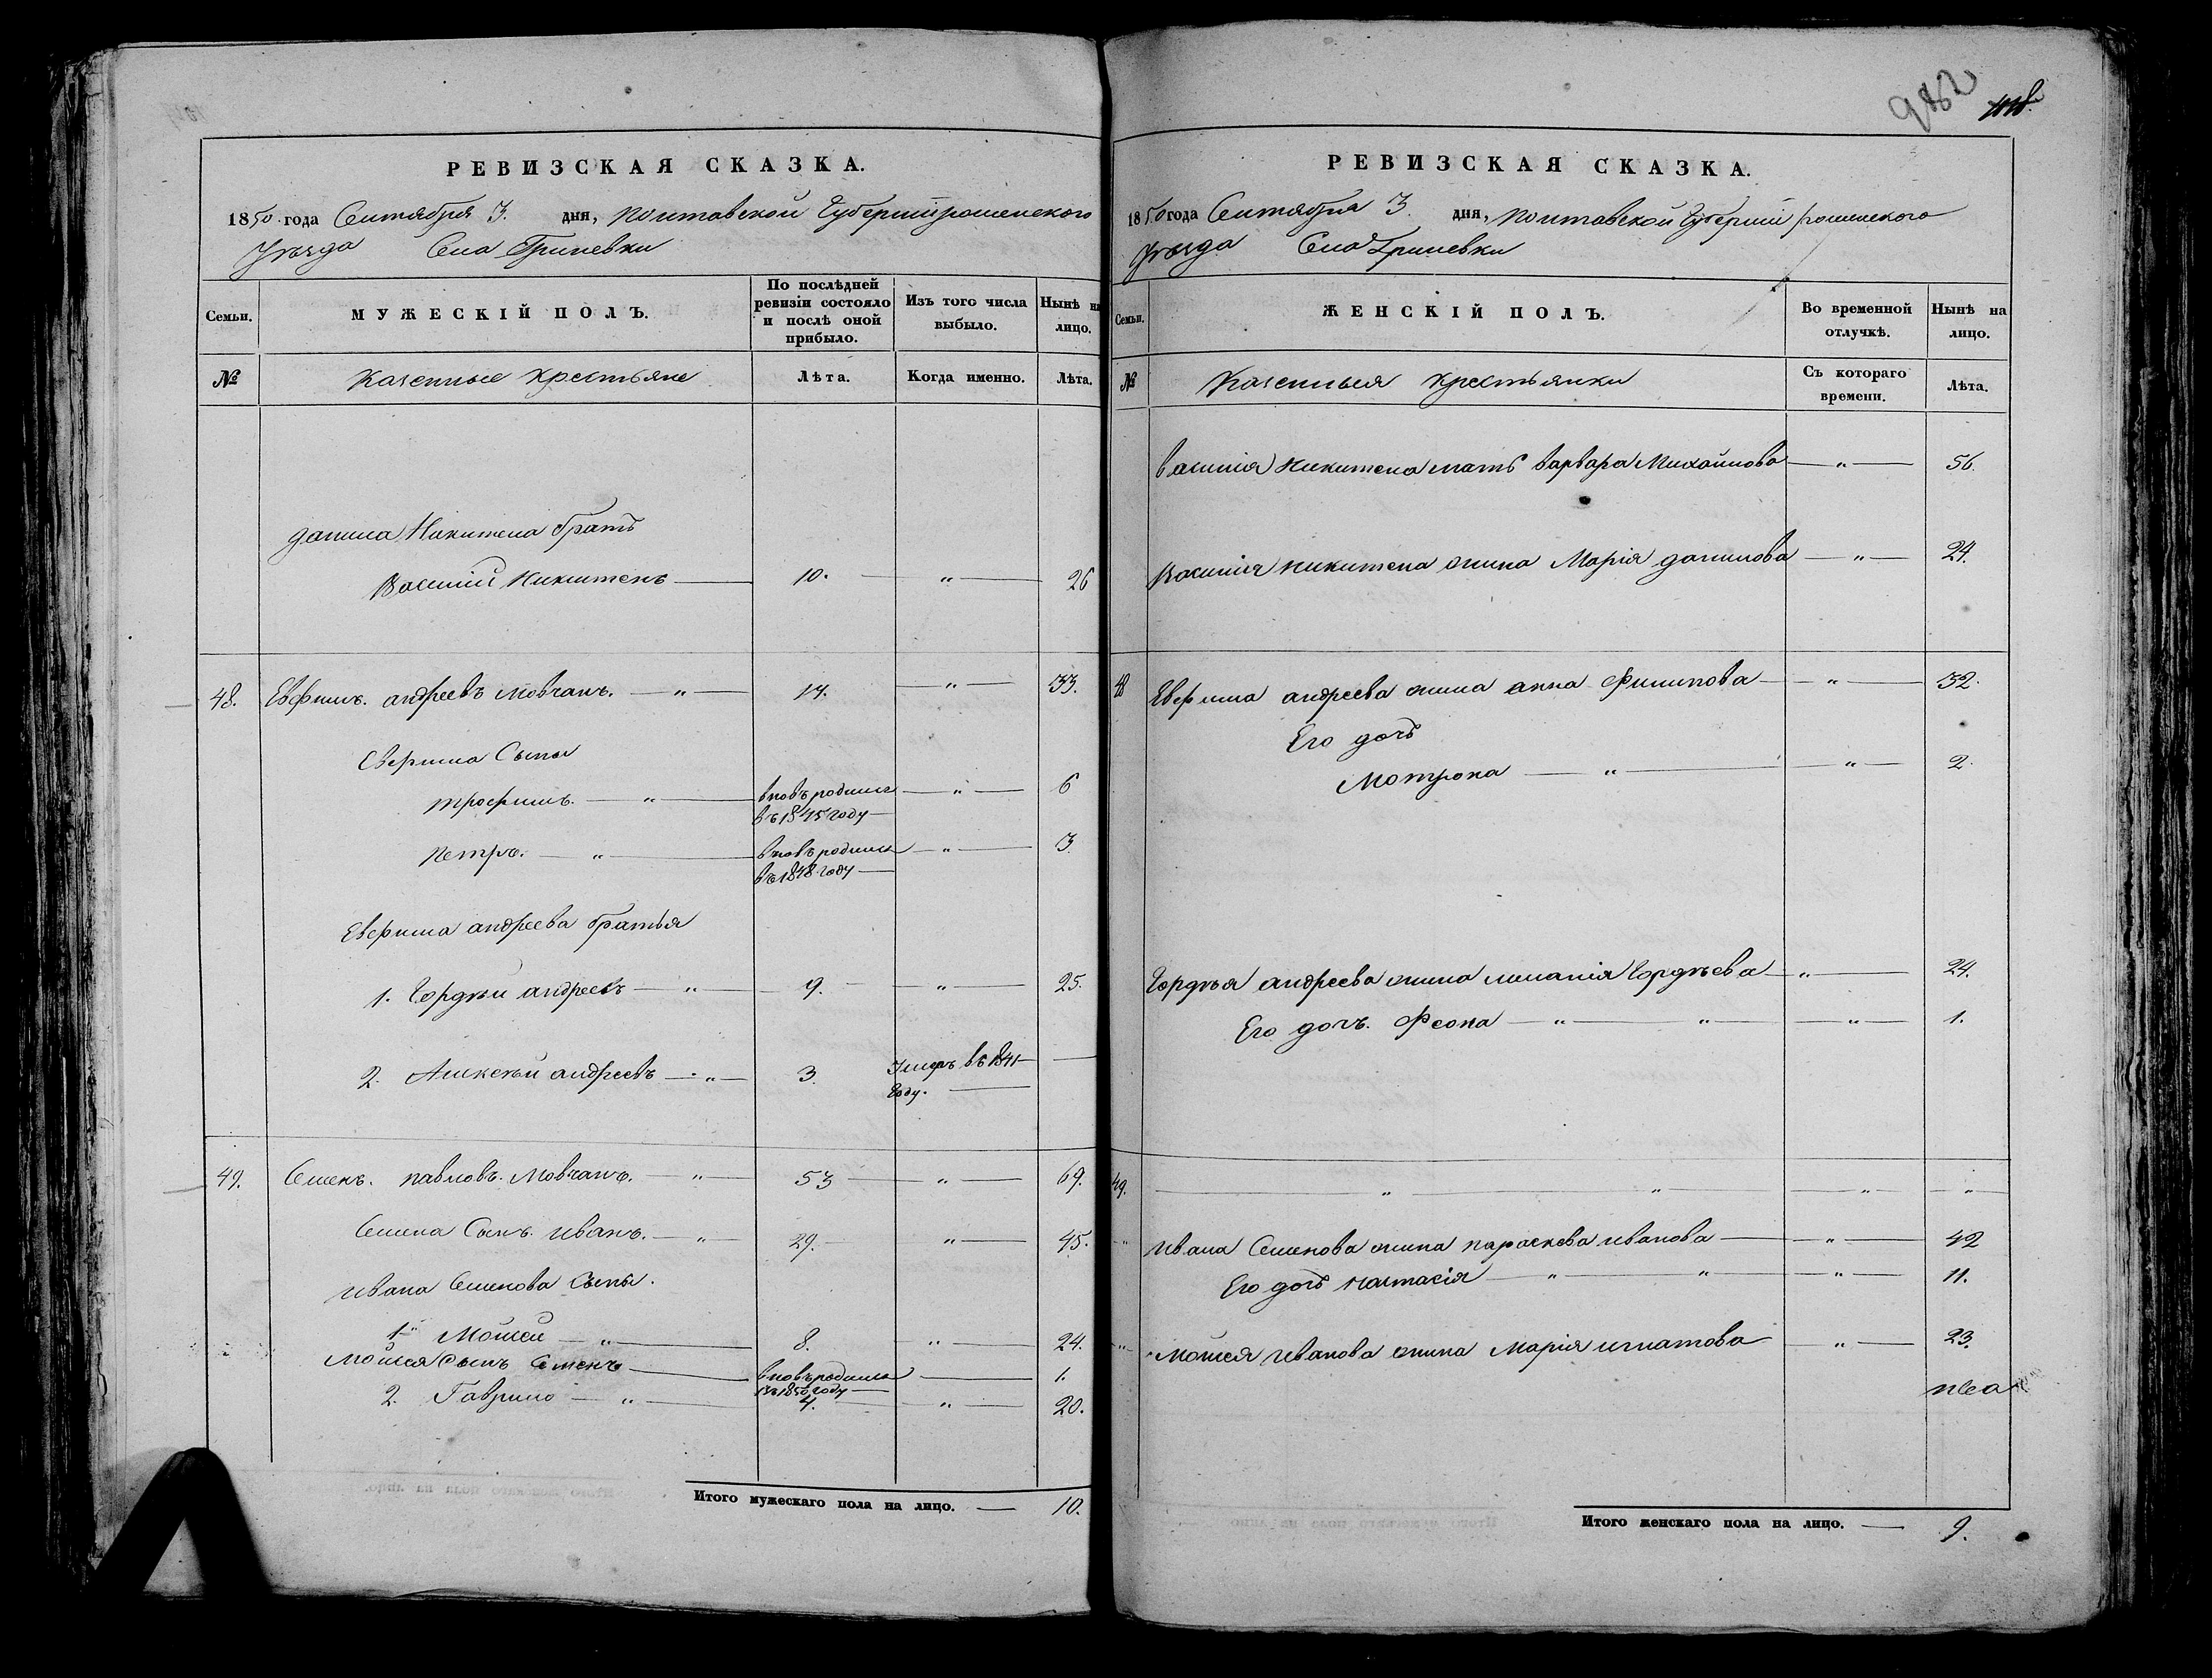 РЕВИЗСКАЯ СКАЗКА.
1850 года Сентября 3. дня, Полтавской Губернии роменского
Уѣзда Села Гриневки
Семьи.
МУЖЕСКІЙ ПОЛЪ.
По послѣдней ревизіи состояло и послѣ оной прибыло.
Изъ того числа выбыло.
Нынѣ на лицо.
№
Казенные крестьяне
Лѣта.
Когда именно.
Лѣта.
данила Никитена братъ
Василій Никитенъ — 10. — „ — 26
48. Евфимъ. андреевъ Мовчанъ. — „ — 14. — „ — 33.
Евфима Сыны
трофимъ. — „ — вновь родился въ 1845 году — „ — 6
Петръ. — „ — вновь родился въ 1848 году — „ — 3
Евфима андреева братья
1. Гордѣй андреевъ — „ — 9. — „ — 25.
2. Алексѣй андреевъ — „ — 3. Умеръ въ 1841 году. —
49. Семенъ. павловъ. Мовчанъ. — „ — 53 — „ — 69.
Семена Сынъ. Иванъ. — „ — 29. — „ — 45.
Ивана Семенова Сыны.
1 Мойсей — „ — 8. — „ — 24.
Мойсея Сынъ Семенъ — вновь родился въ 1850 году — 1.
2. Гаврило — „ — 4. — „ — 20.
Итого мужескаго пола на лицо. — 10.
982
РЕВИЗСКАЯ СКАЗКА.
1850 года Сентября 3. дня, Полтавской Губернии роменского
Уѣзда Села Гриневки
Семьи.
ЖЕНСКІЙ ПОЛЪ.
Во временной отлучкѣ.
Нынѣ на лицо.
№
Казенныя крестьянки
Съ котораго времени.
Лѣта.
Василія Никитена мать варвара Михайлова — „ — 56.
Василія никитена жина Марія данилова — „ — 24.
48 Евфима андреева жина анна Филипова — „ — 32.
Его дочь
Мотрона — „ — „ — 2.
Гордѣя андреева жина миланія Гордѣева — „ — 24.
Его дочъ. Феона — „ — „ — „ — 1.
49. — „ — „ — „ — „
Ивана Семенова жина параскева иванова — „ — 42
Его дочь настасія — „ — „ — „ — 11.
Мойсея Иванова жина Марія игнатова — „ — 23.
Итого женскаго пола на лицо. — 9.